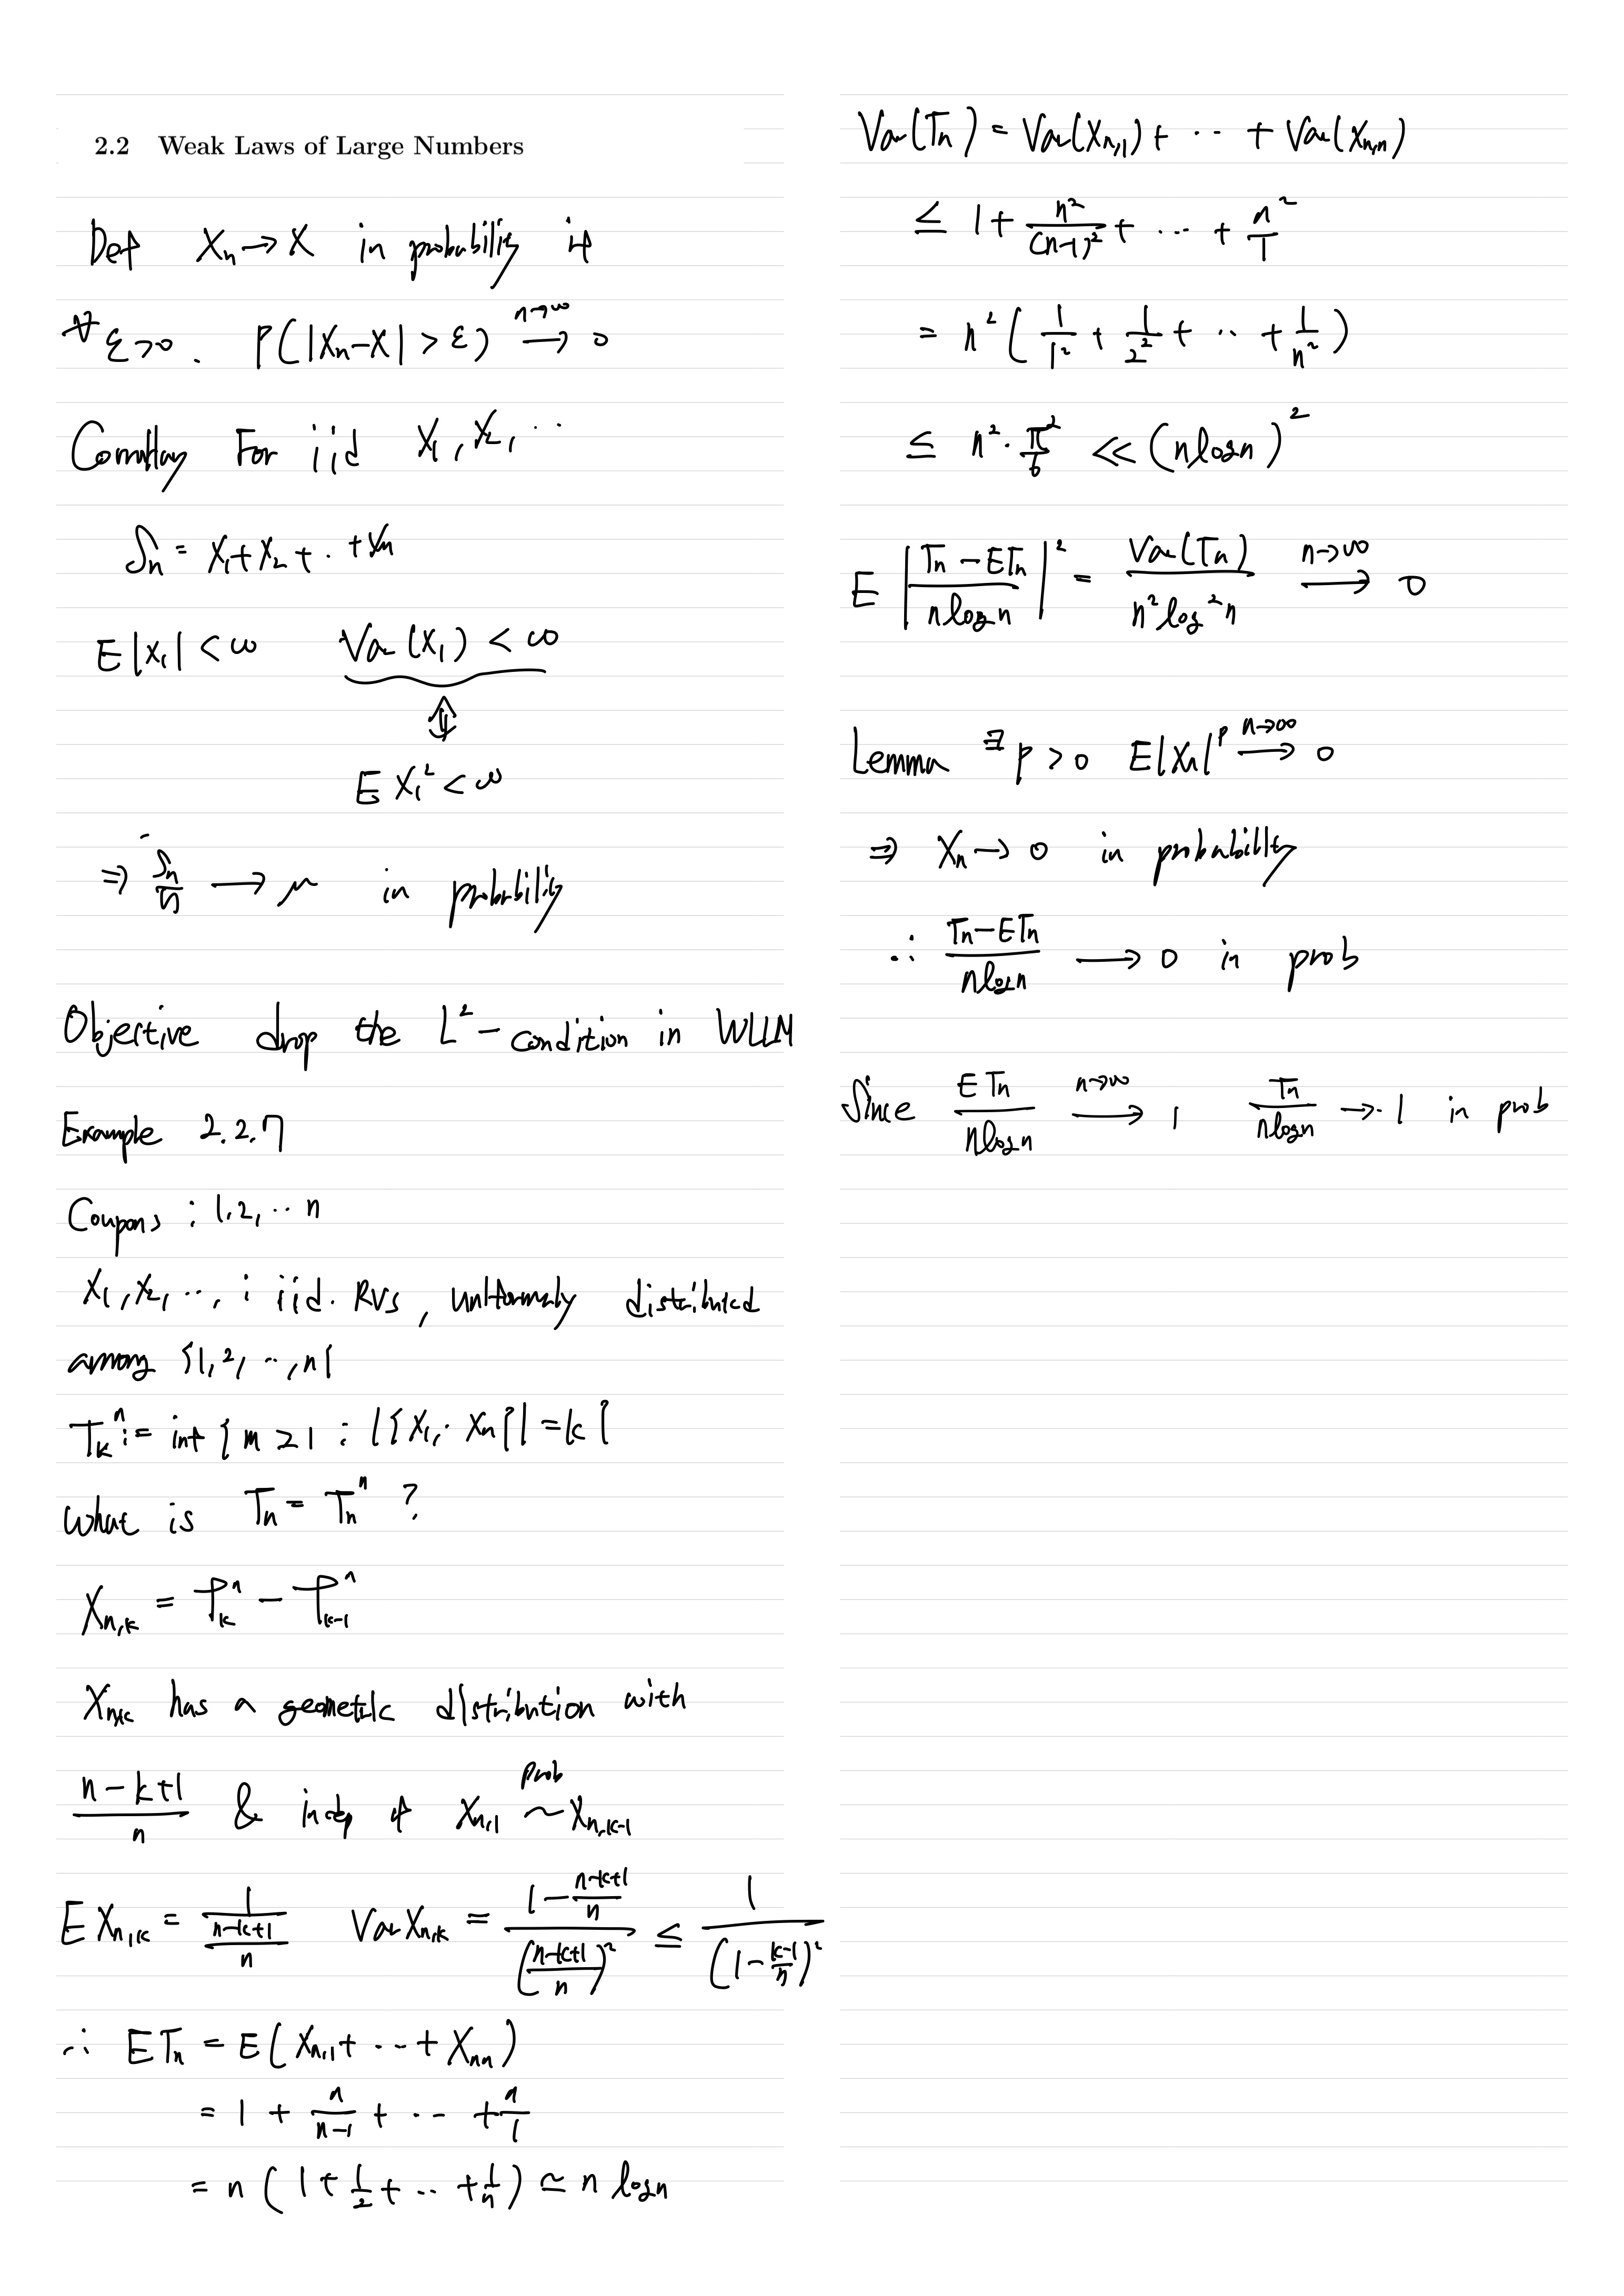 2.2 Weak Laws of Large Numbers
Def Xₙ → X in probability if
∀ε>0. P(|Xₙ−X| > ε) →(n→∞) 0
Corollary For iid X₁, X₂, ..
Sₙ = X₁+X₂+..+Xₙ
E|X₁| < ∞ Var(X₁) < ∞
⇕
E X₁² < ∞
⇒ Sₙ/n → μ in probability
Objective drop the L²-condition in WLLN
Example 2.2.7
Coupons : 1,2,... n
X₁, X₂, ..., : iid. RVs, uniformly distributed
among {1,2, ..., n}
Tₖⁿ := inf { m ≥ 1 : |{X₁,.. Xₙ}| = k }
What is Tₙ = Tₙⁿ ?
Xₙ,ₖ = Tₖⁿ − Tₖ₋₁ⁿ
Xₙ,ₖ has a geometric distribution with
prob
(n−k+1)/n & indep of Xₙ,₁ ~ Xₙ,ₖ₋₁
E Xₙ,ₖ = 1/((n−k+1)/n) Var Xₙ,ₖ = (1 − (n−k+1)/n)/((n−k+1)/n)² ≤ 1/(1 − (k−1)/n)²
∴ ETₙ = E(Xₙ,₁ + ... + Xₙₙ)
= 1 + n/(n−1) + ... + n/1
= n (1 + 1/2 + .. + 1/n) ≃ n log n
Var(Tₙ) = Var(Xₙ,₁) + ... + Var(Xₙ,ₙ)
≤ 1 + n²/(n−1)² + ... + n²/1
= n² (1/1² + 1/2² + ... + 1/n²)
≤ n² · π²/6 ≪ (n log n)²
E |(Tₙ − ETₙ)/(n log n)|² = Var(Tₙ)/(n² log² n) →(n→∞) 0
Lemma ∃p > 0 E|Xₙ|ᵖ →(n→∞) 0
⇒ Xₙ → 0 in probability
∴ (Tₙ−ETₙ)/(n log n) → 0 in prob
Since ETₙ/(n log n) →(n→∞) 1 Tₙ/(n log n) → 1 in prob